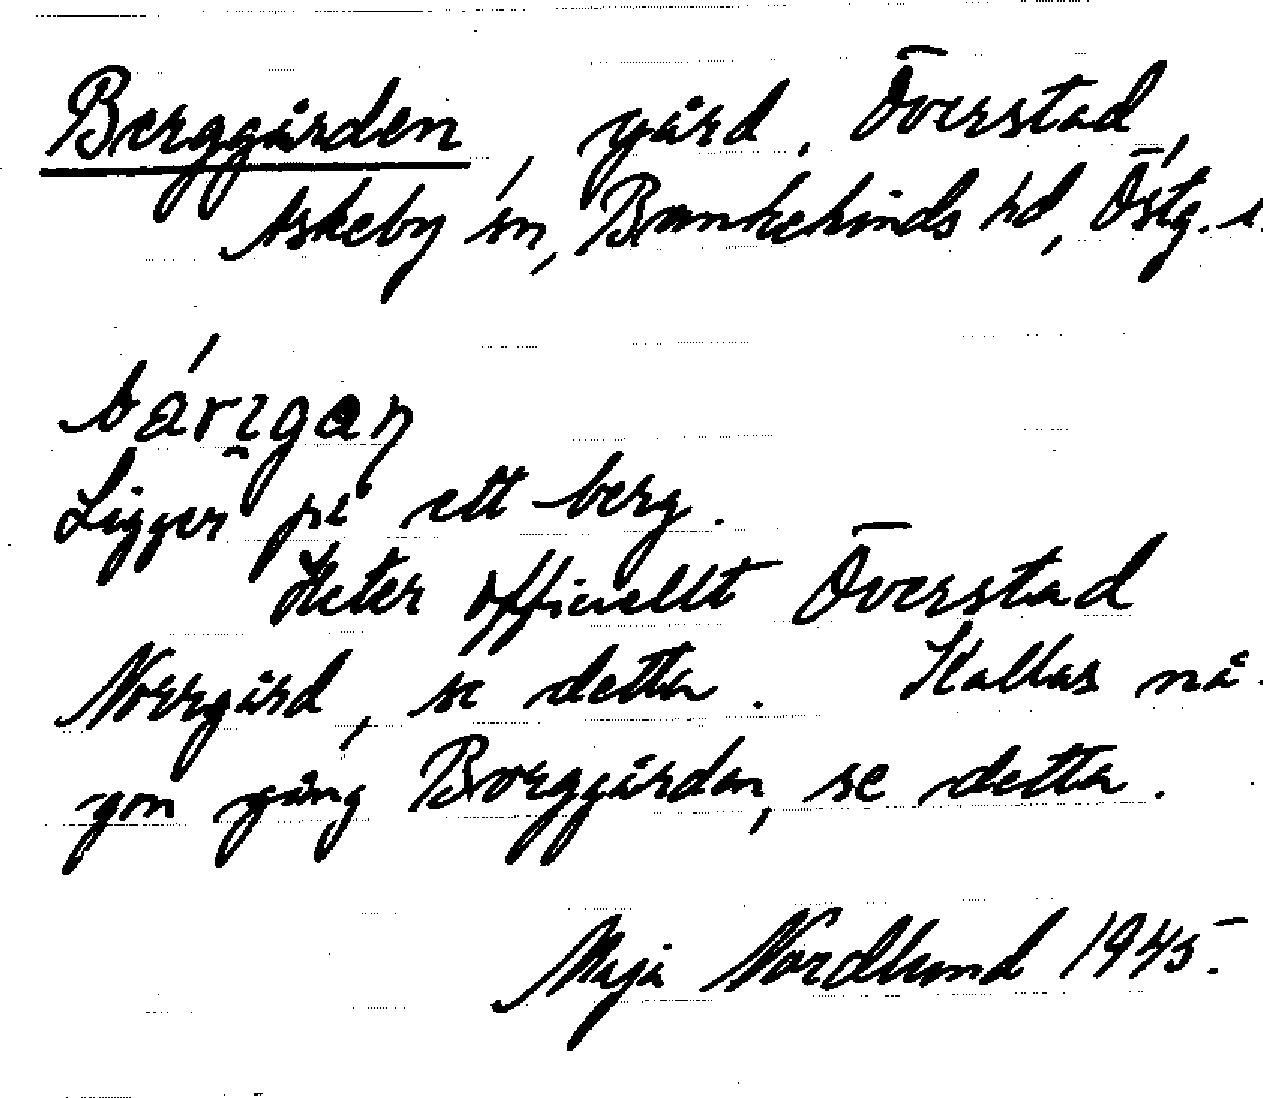 Berggården, gård, Överstad,
Askeby sn, Bankekinds hd, Östg. l.
Ligger på ett berg.
Heter officiellt Överstad
Norrgård, se detta. Kallas nå-
gon gång Borggården, se detta.
Maja Nordlund 1945.